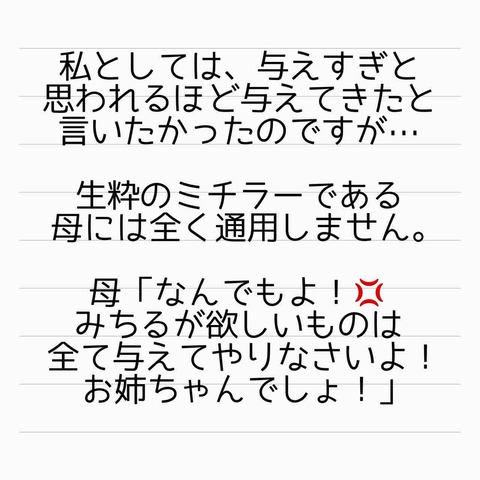 私としては、与えすぎと
思われるほど与えてきたと
言いたかったのですが…
生粋のミチラーである
母には全く通用しません。
母「なんでもよ！💢
みちるが欲しいものは
全て与えてやりなさいよ！
お姉ちゃんでしょ！」